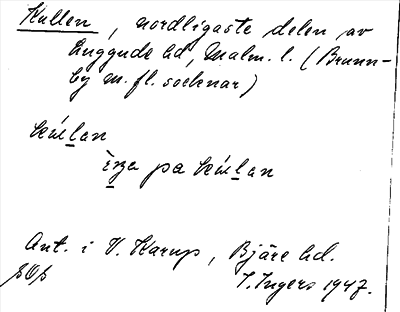 Kullen, nordligaste delen av
Luggude hd, Malm. l. (Brunn-
by m. fl. socknar)
kúllan
pa kúllan
Ant. i V. Karup, Bjäre hd.
I. Ingers 1947.